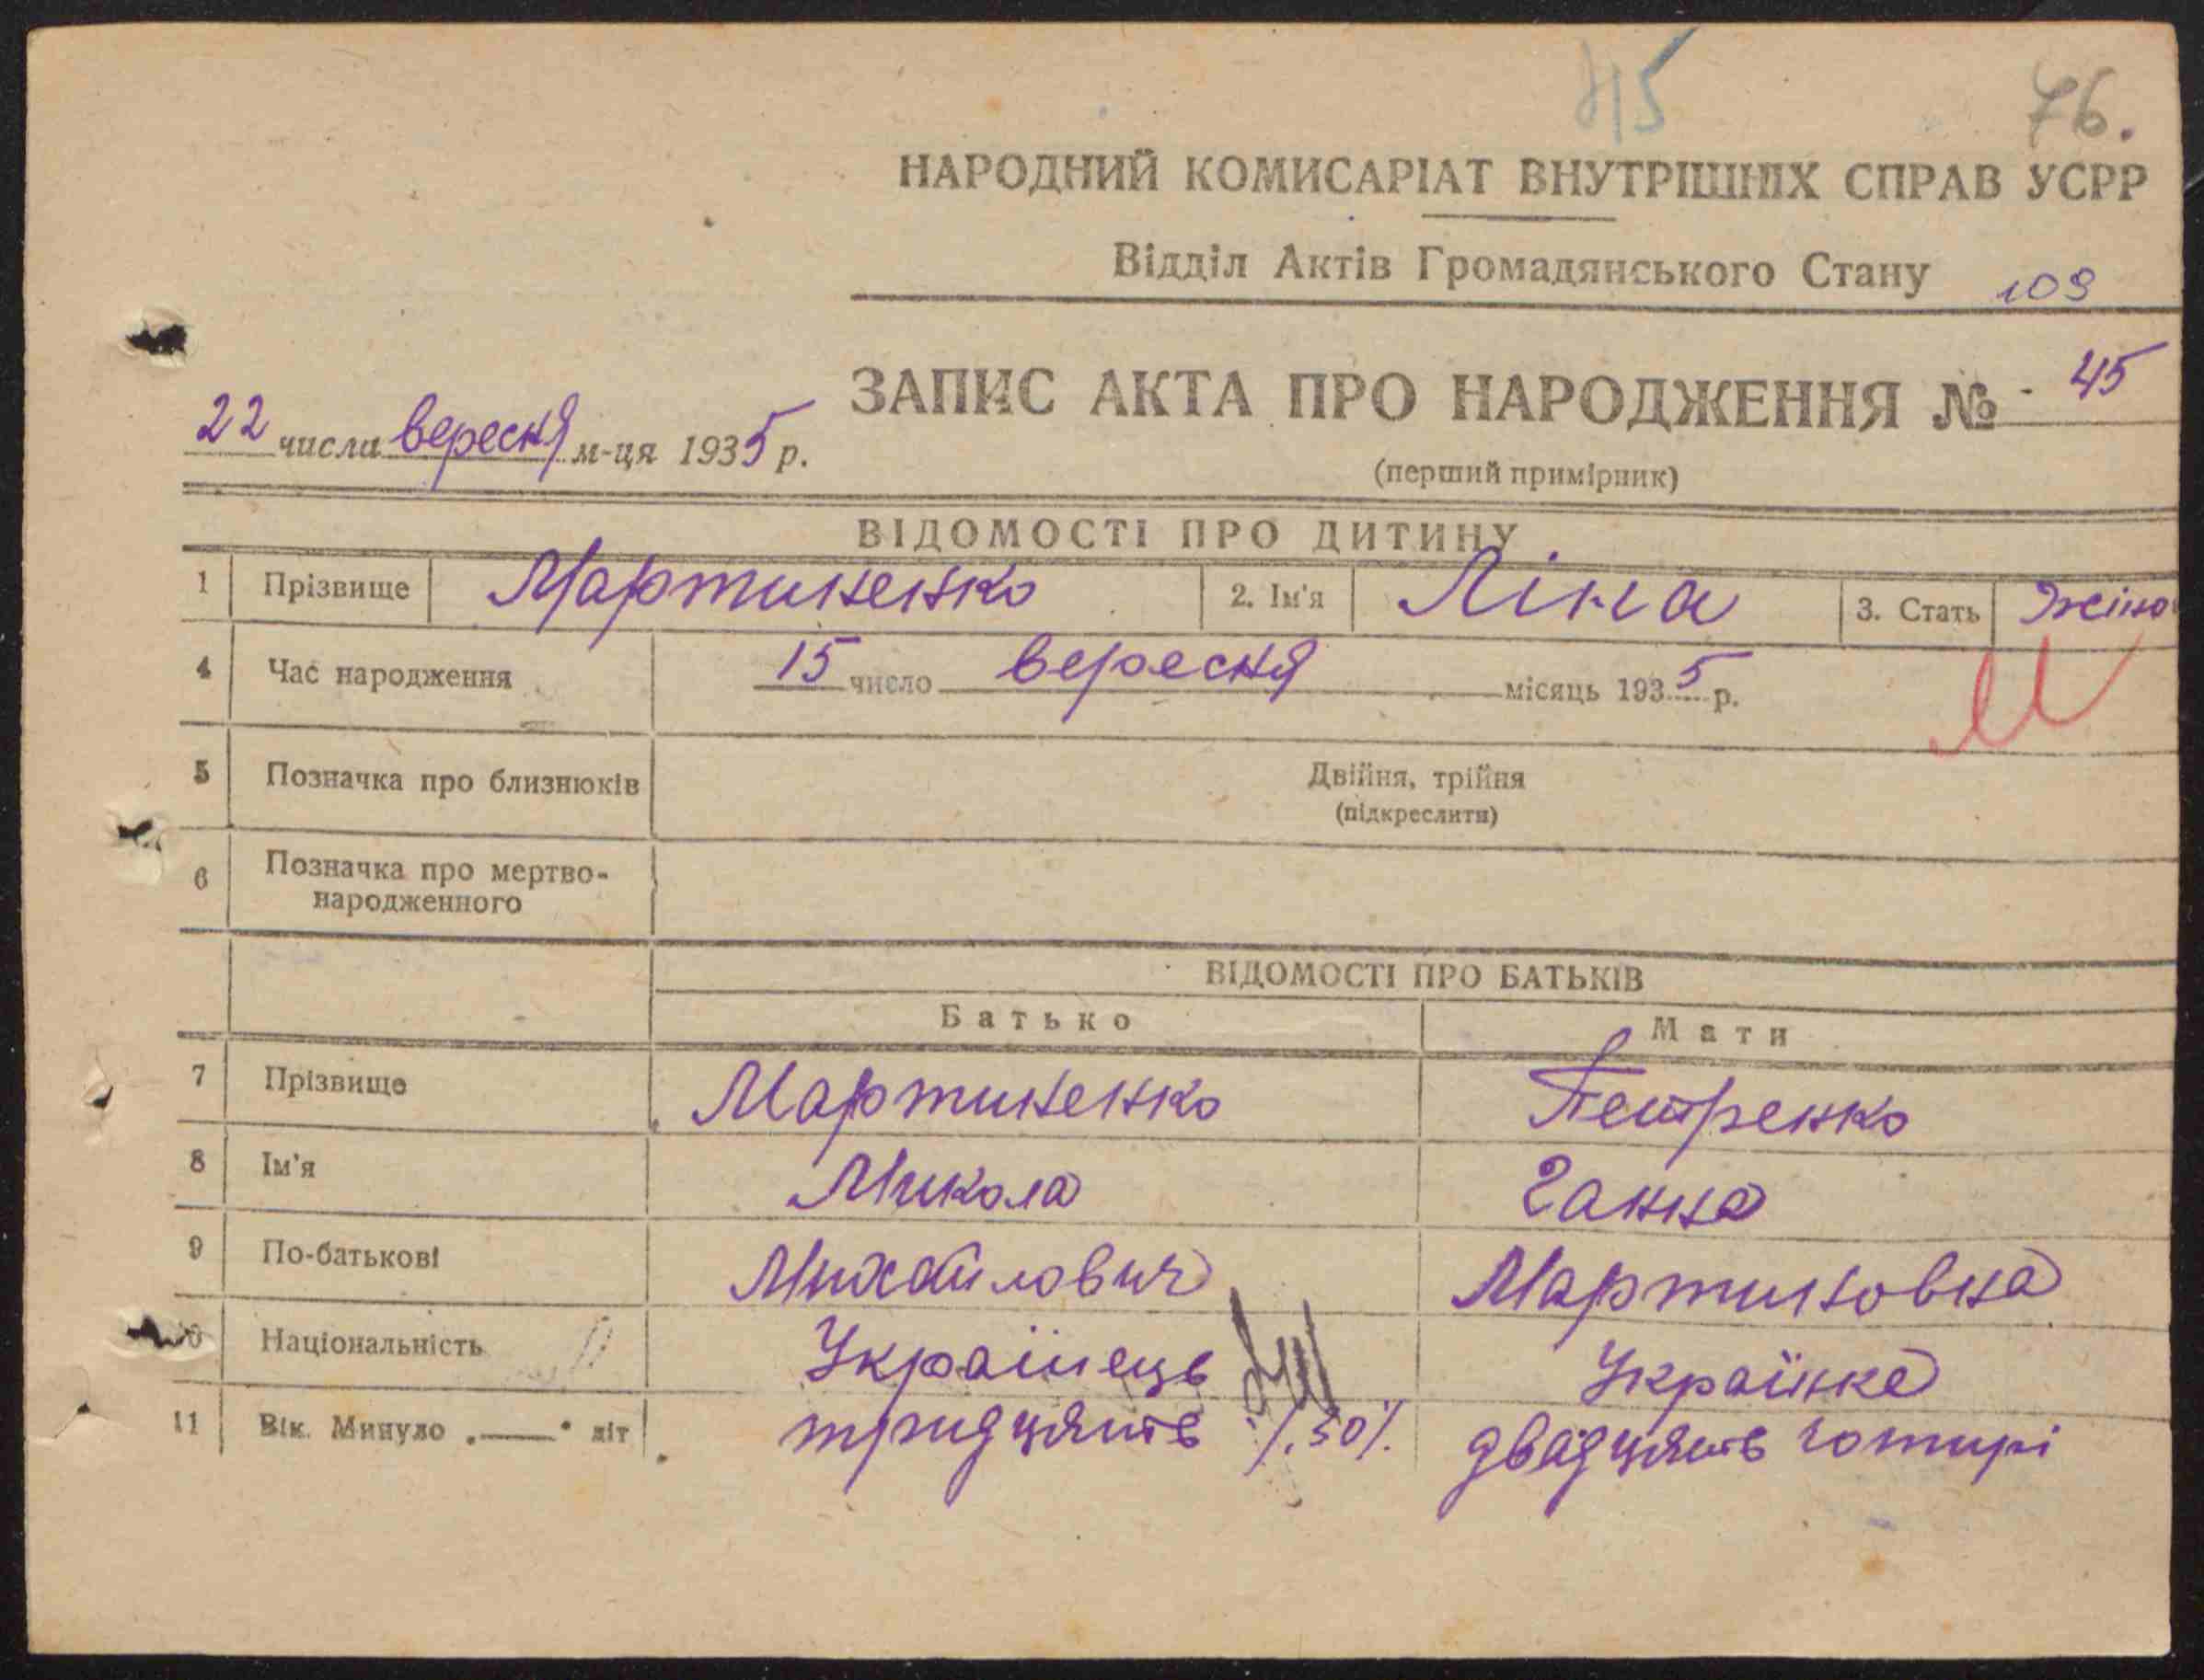 45
76.
НАРОДНИЙ КОМИСАРІАТ ВНУТРІШНІХ СПРАВ УСРР
Відділ Актів Громадянського Стану 109
ЗАПИС АКТА ПРО НАРОДЖЕННЯ № 45
22 числа вересня м-ця 1935 р.
(перший примірник)
ВІДОМОСТІ ПРО ДИТИНУ
1 Прізвище Мартиненко 2. Ім'я Ліна 3. Стать Жіно
4 Час народження 15 число вересня місяць 1935 р.
5 Позначка про близнюків Двійня, трійня
(підкреслити)
6 Позначка про мертво-
народженного
ВІДОМОСТІ ПРО БАТЬКІВ
Батько Мати
7 Прізвище Мартиненко Петренко
8 Ім'я Микола Ганна
9 По-батькові Михайлович Мартиновна
10 Національність Українець Українка
11 Вік. Минуло „—" літ тридцять 30 двадцять чотирі